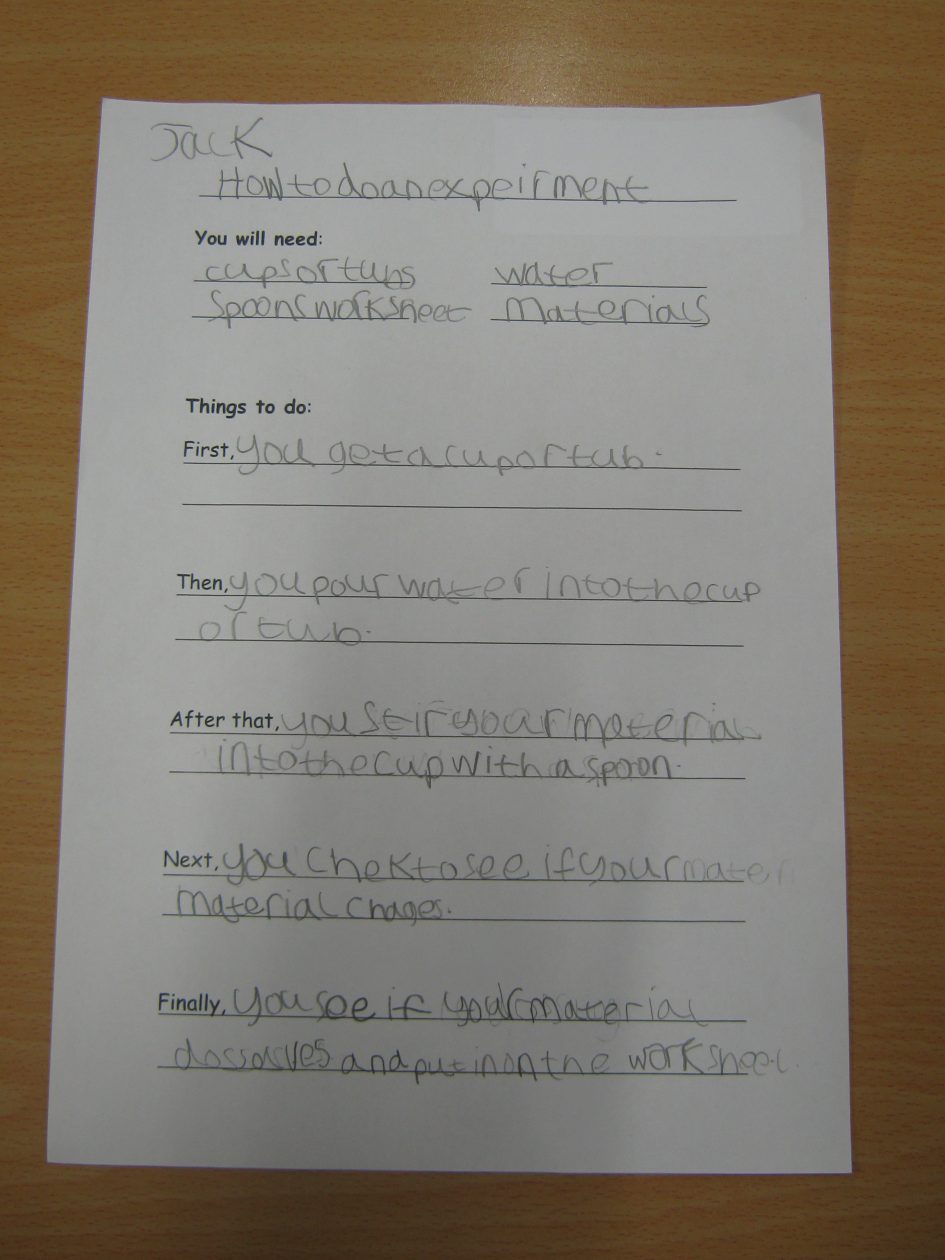 Jack
How to do an expeirment
You will need:
cups or tubs water
spoons worksheet materials
Things to do:
First, you get a cup or tub.
Then, you pour water into the cup
or tub.
After that, you stir your material
into the cup with a spoon.
Next, you chek to see if your mater
material chages.
Finally, you see if your material
dossolves and put in on the worksheet.